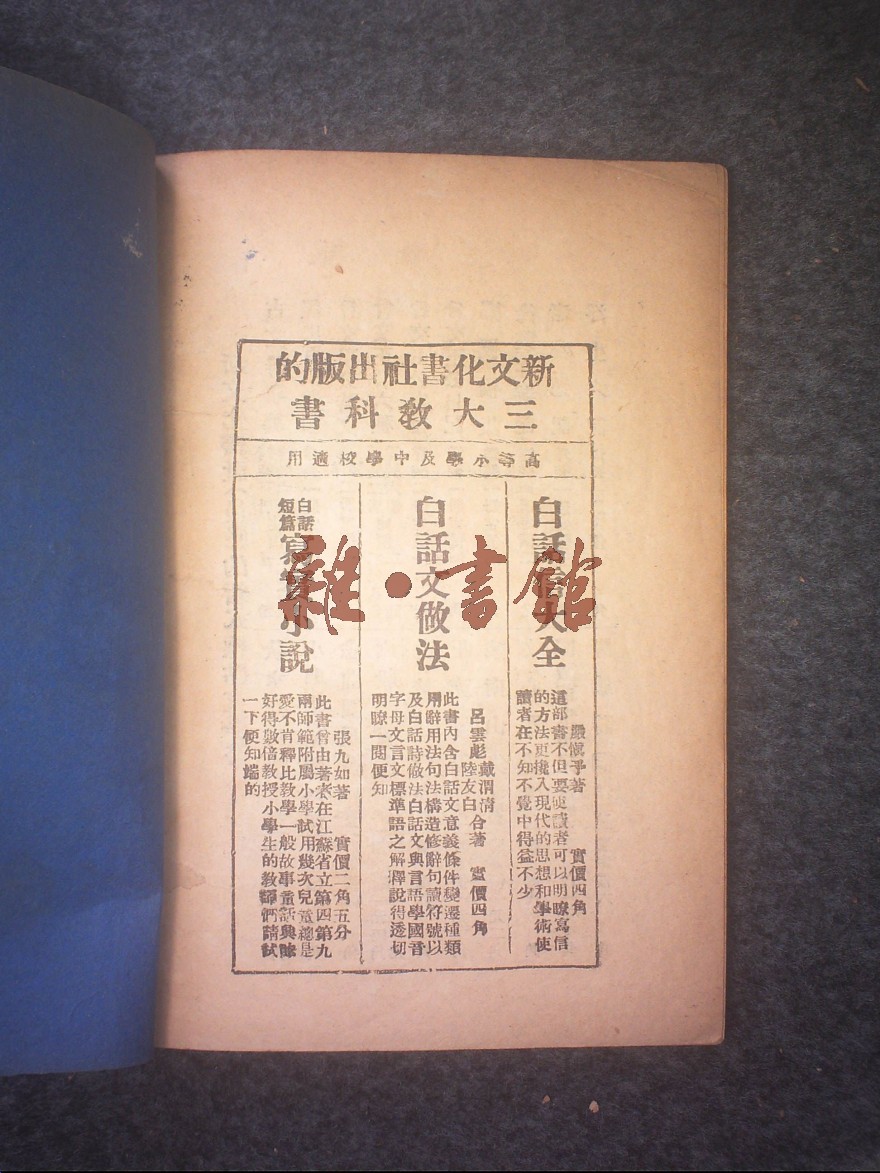 新文化書社出版的
三大教科書
高等小學及中學校適用
白話信大全
嚴愼予著 實價四角
這部書不但要使讀者可以明瞭寫信
的方法更攙入現代的思想和學術使
讀者在不知不覺中得益不少
白話文做法
戴渭清
呂雲彪 陸友白 合著 實價四角
此書內含白話文意義條件變遷種類
用辭用法句法構造修辭句讀符號以
及白話詩做法白話文與言語學國音
字母文言文標準語之解釋說得透切
明瞭一閱便知
白話
短篇
寫實小說
張九如著 實價二角五分
此書曾由著者在江蘇省立第四第九
兩師範附屬小學試用幾次兒童總是
愛不肯釋比教學一般故事童話興味
好得數倍教授小學生的教師們請試
一下便知端的
雜·書館